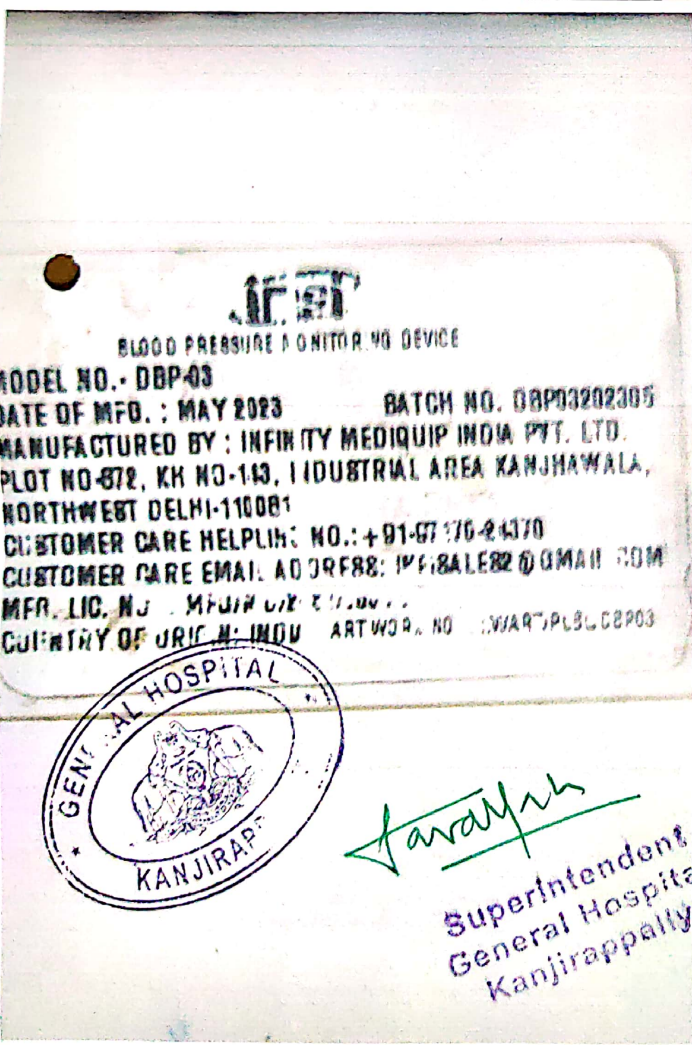 BLOOD PRESSURE MONITORING DEVICE
MODEL NO.- DBP-03
DATE OF MFD. : MAY 2023 BATCH NO. DBP03202305
MANUFACTURED BY : INFINITY MEDIQUIP INDIA PVT. LTD.
PLOT NO-672, KH NO-143, INDUSTRIAL AREA KANJHAWALA,
NORTHWEST DELHI-110081
CUSTOMER CARE HELPLINE NO.: +91-
CUSTOMER CARE EMAIL ADDRESS:
MFR. LIC. NO
COUNTRY OF ORIGIN: INDIA ARTWORK NO
GENERAL HOSPITAL
KANJIRAP
Superintendent
General Hospita
Kanjirappally